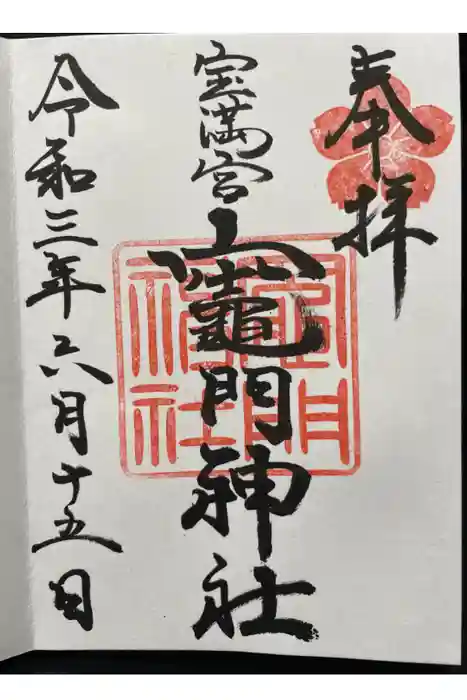 奉拝
宝満宮
竈門神社
令和三年六月十五日